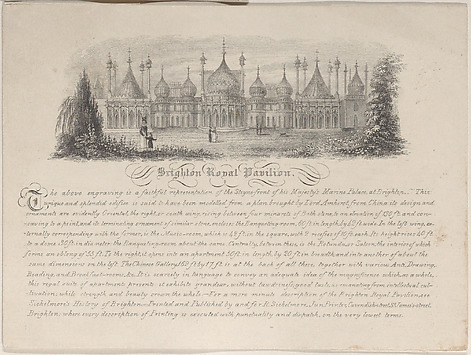 Brighton Royal Pavilion.
The above engraving is a faithful representation of the Steyne front of his Majesty's Marine Palace, at Brighton. This
unique and splendid edifice is said to have been modelled from a plan brought by Lord Amherst, from China its design and
ornaments are evidently Oriental, the right, or north wing, rising between four minarets of Bath stone, to an elevation of
verging to a point, and its terminating ornament of similar stone, encloses the Banqueting room, 60 ft in length, by 42 ft wide. In the left wing, ex-
ternally corresponding with the former, is the Music-room, which is 42 ft in the square, with
to a dome 30 ft in diameter the Banqueting-room about the same. Centrally, between this, is the Rotunda, or Saloon, the interior of which
forms an oblong of 55 ft. To the right of
same dimensions on the left. The Chinese Gallery, 162 ft by 17 ft is at the back of all these, together with various Ante, Drawing,
Reading, and Breakfast-rooms, &c. It is scarcely in language to convey an adequate idea of the magnificence which, as a whole,
this royal suite of apartments presents it exhibits grandeur, without tawdriness, good taste, emanating from intellectual cul-
tivation, while strength and beauty crown the whole. For a more minute description of the Brighton Royal Pavilion, see
Sickelmore's History of Brighton. Printed and Published by and for R. Sickelmore, Jun. Printer,
Brighton, where every description of Printing is executed with punctuality and dispatch, on the very lowest terms.